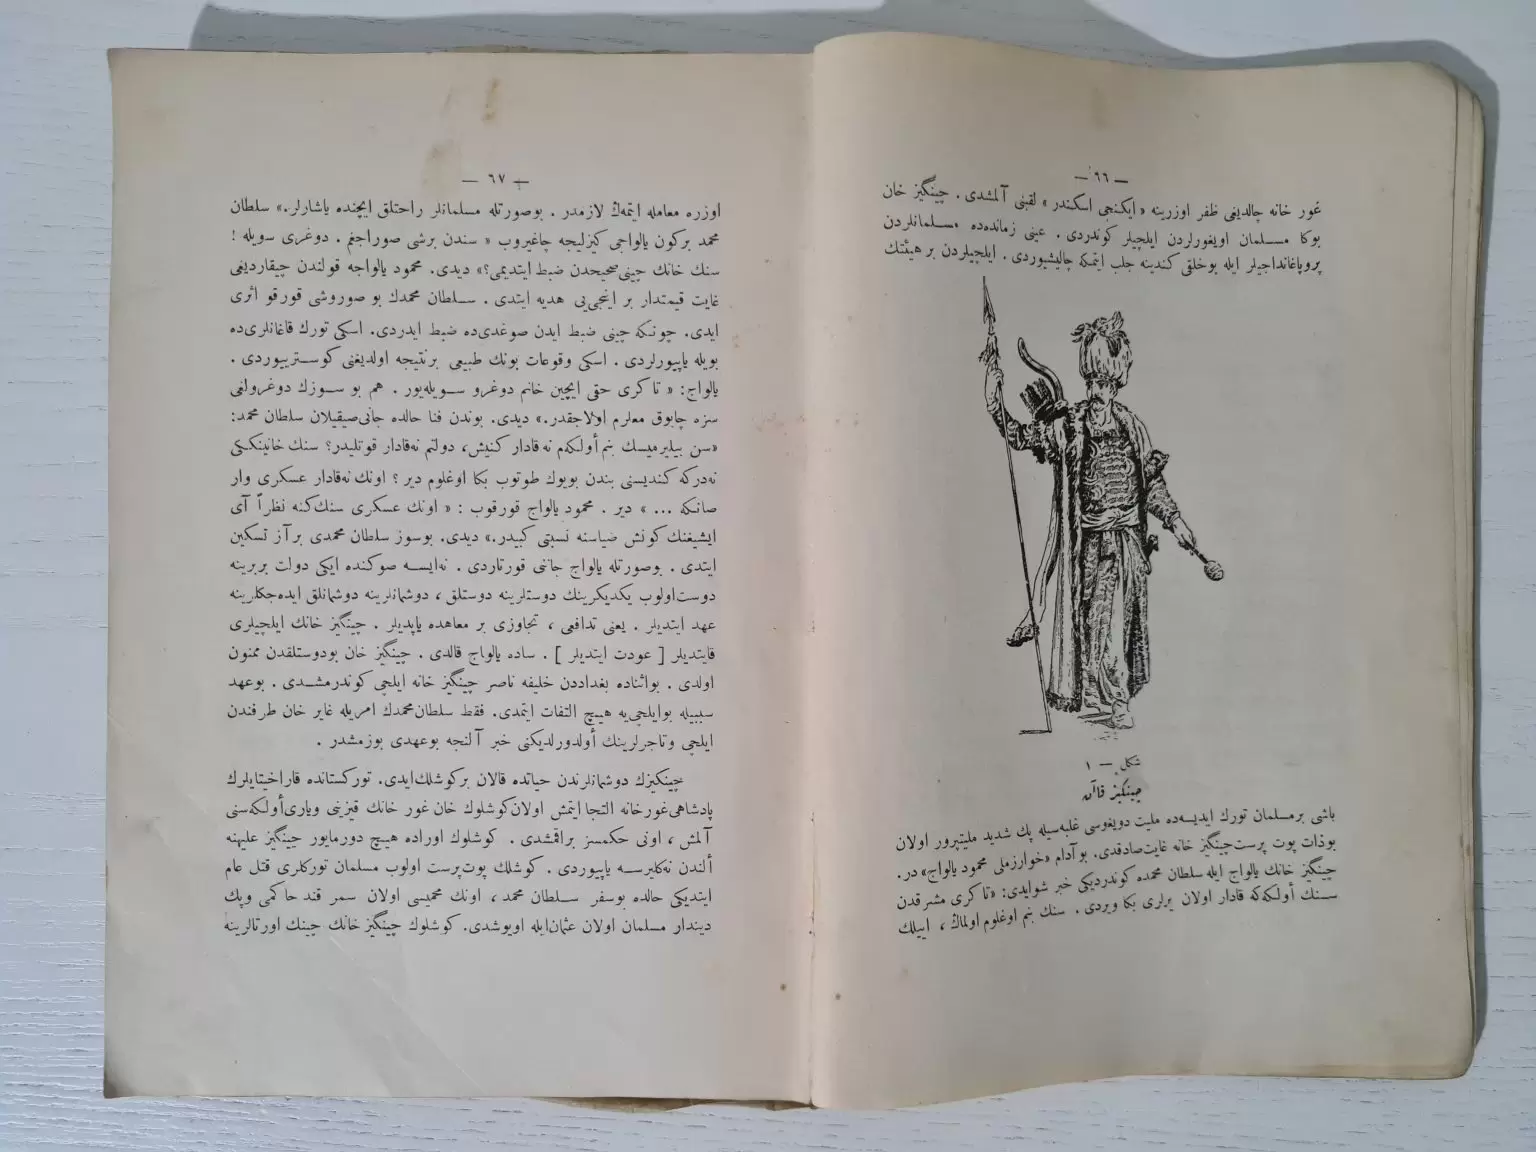 — ٦٦ —
غور خانه چالدیغی ظفر اوزرینه « ایکنجی اسکندر » لقبنی آلمشدی . چینگیز خان
بوکا مسلمان اویغورلردن ایلچیلر کوندردی . عینی زمانده‌ده مسلمانلردن
پروپاغانداجیلر ایله بوخلقی کندینه جلب ایتمکه چالیشیوردی . ایلچیلردن بر هیئتك
شکل — ١
چینکیز قاآن
باشی برمسلمان تورك ایدیسه‌ده ملیت دویغوسی غلبه‌سیله پك شدید ملیتپرور اولان
بوذات پوت پرست چینگیز خانه غایت صادقدی. بو آدام «خوارزملی محمود یالواج» در.
چینگیز خانك یالواج ایله سلطان محمده کوندردیکی خبر شوایدی: «تاکری مشرقدن
سنك أولکه‌که قادار اولان یرلری بکا ویردی . سنك بنم اوغلوم اولماك ، اییلك
— ٦٧ —
اوزره معامله ایتمه‌ك لازمدر . بوصورتله مسلمانلر راحتلق ایچنده یاشارلر.» سلطان
محمد برکون یالواجی کیزلیجه چاغیروب « سندن برشی صوراجغم . دوغری سویله !
سنك خانك چینی صحیحدن ضبط ایتدیمی؟» دیدی. محمود یالواجه قولندن چیقاردیغی
غایت قیمتدار بر اینجی‌یی هدیه ایتدی . سلطان محمدك بو صوروشی قورقو اثری
ایدی. چونکه چینی ضبط ایدن صوغدی‌ده ضبط ایدردی. اسکی تورك قاغانلری‌ده
بویله یاپیورلردی . اسکی وقوعات بونك طبیعی برنتیجه اولدیغنی کوستریوردی .
یالواج: « تاکری حقی ایچین خانم دوغرو سویله‌یور . هم بو سوزك دوغرولغی
سزه چابوق معلوم اولاجقدر.» دیدی. بوندن فنا حالده جانی صیقیلان سلطان محمد:
«سن بیلیرمیسك بنم أولکه‌م نه قادار کنیش، دولتم نه‌قادار قوتلیدر؟ سنك خانینکی
نه‌درکه کندیسنی بندن بویوك طوتوب بکا اوغلوم دیر ؟ اونك نه‌قادار عسکری وار
صانکه ... » دیر . محمود یالواج قورقوب : « اونك عسکری سنك‌کنه نظراً آی
ایشیغنك کونش ضیاسنه نسبتی کبیدر.» دیدی. بوسوز سلطان محمدی بر آز تسکین
ایتدی . بوصورتله یالواج جاننی قورتاردی . نه‌ایسه صوکنده ایکی دولت بربرینه
دوست‌اولوب یکدیکرینك دوستلرینه دوستلق ، دوشمانلرینه دوشمانلق ایده‌جکلرینه
عهد ایتدیلر . یعنی تدافعی ، تجاوزی بر معاهده یاپدیلر . چینگیز خانك ایلچیلری
قایتدیلر [ عودت ایتدیلر ] . ساده یالواج قالدی . چینگیز خان بودوستلقدن ممنون
اولدی . بواثناده بغداددن خلیفه ناصر چینگیز خانه ایلچی کوندرمشدی . بوعهد
سببیله بوایلچی‌یه هیچ التفات ایتمدی. فقط سلطان‌محمدك امریله غایر خان طرفندن
ایلچی وتاجرلرینك أولدورلدیکنی خبر آلنجه بوعهدی بوزمشدر .
چینکیزك دوشمانلرندن حیاتده قالان برکوشلك‌ایدی. تورکستانده قاراخیتایلرك
پادشاهی‌غورخانه التجا ایتمش اولان‌کوشلوك خان غور خانك قیزینی ویاری‌أولکه‌سنی
آلمش ، اونی حکمسز براقمشدی . کوشلوك اوراده هیچ دورمایور چینگیز علیهنه
ألندن نه‌کلیرسه یاپیوردی . کوشلك پوت‌پرست اولوب مسلمان تورکلری قتل عام
ایتدیکی حالده بوسفر سلطان محمد ، اونك محمیسی اولان سمر قند حاکمی وپك
دیندار مسلمان اولان عثمان‌ایله اویوشدی. کوشلوك چینگیز خانك چینك اورتالرینه